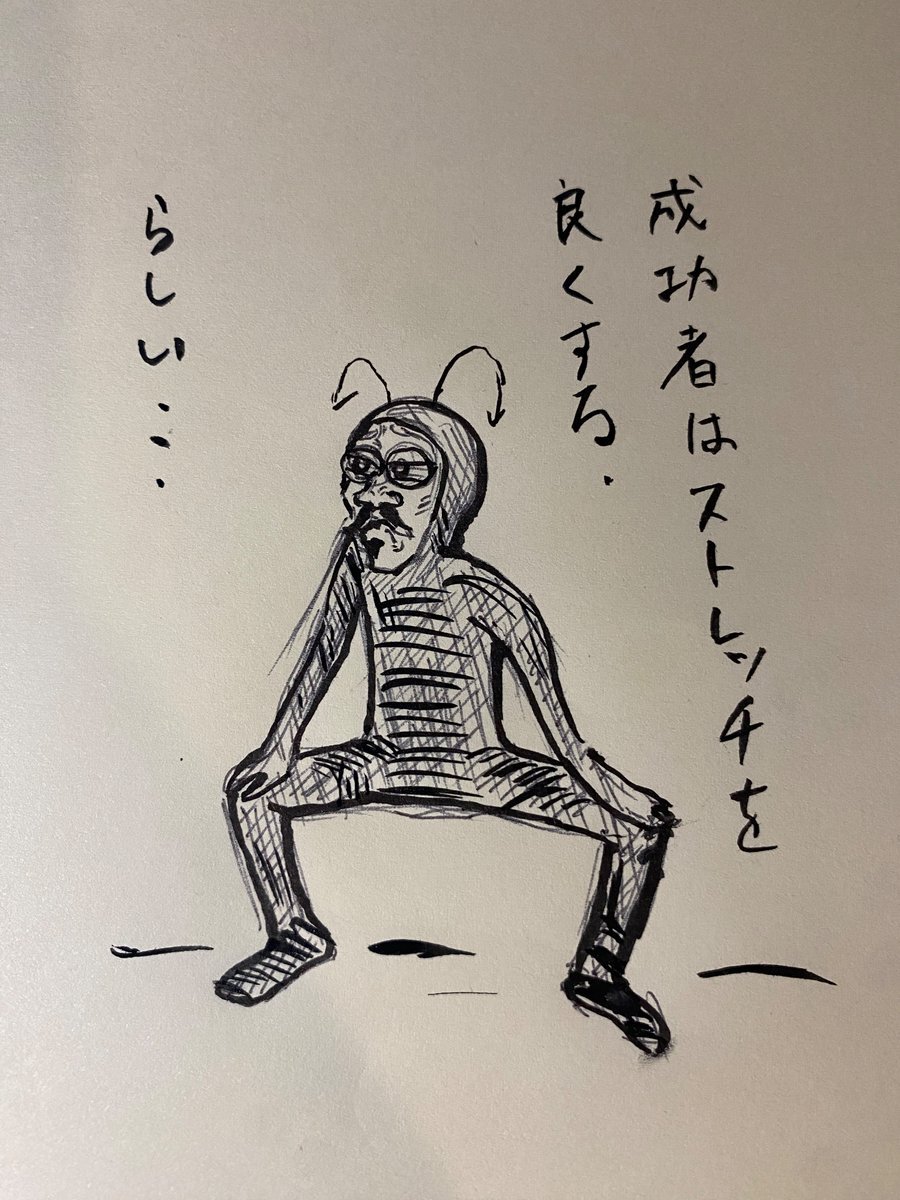 成功者はストレッチを
良くする.
らしい...